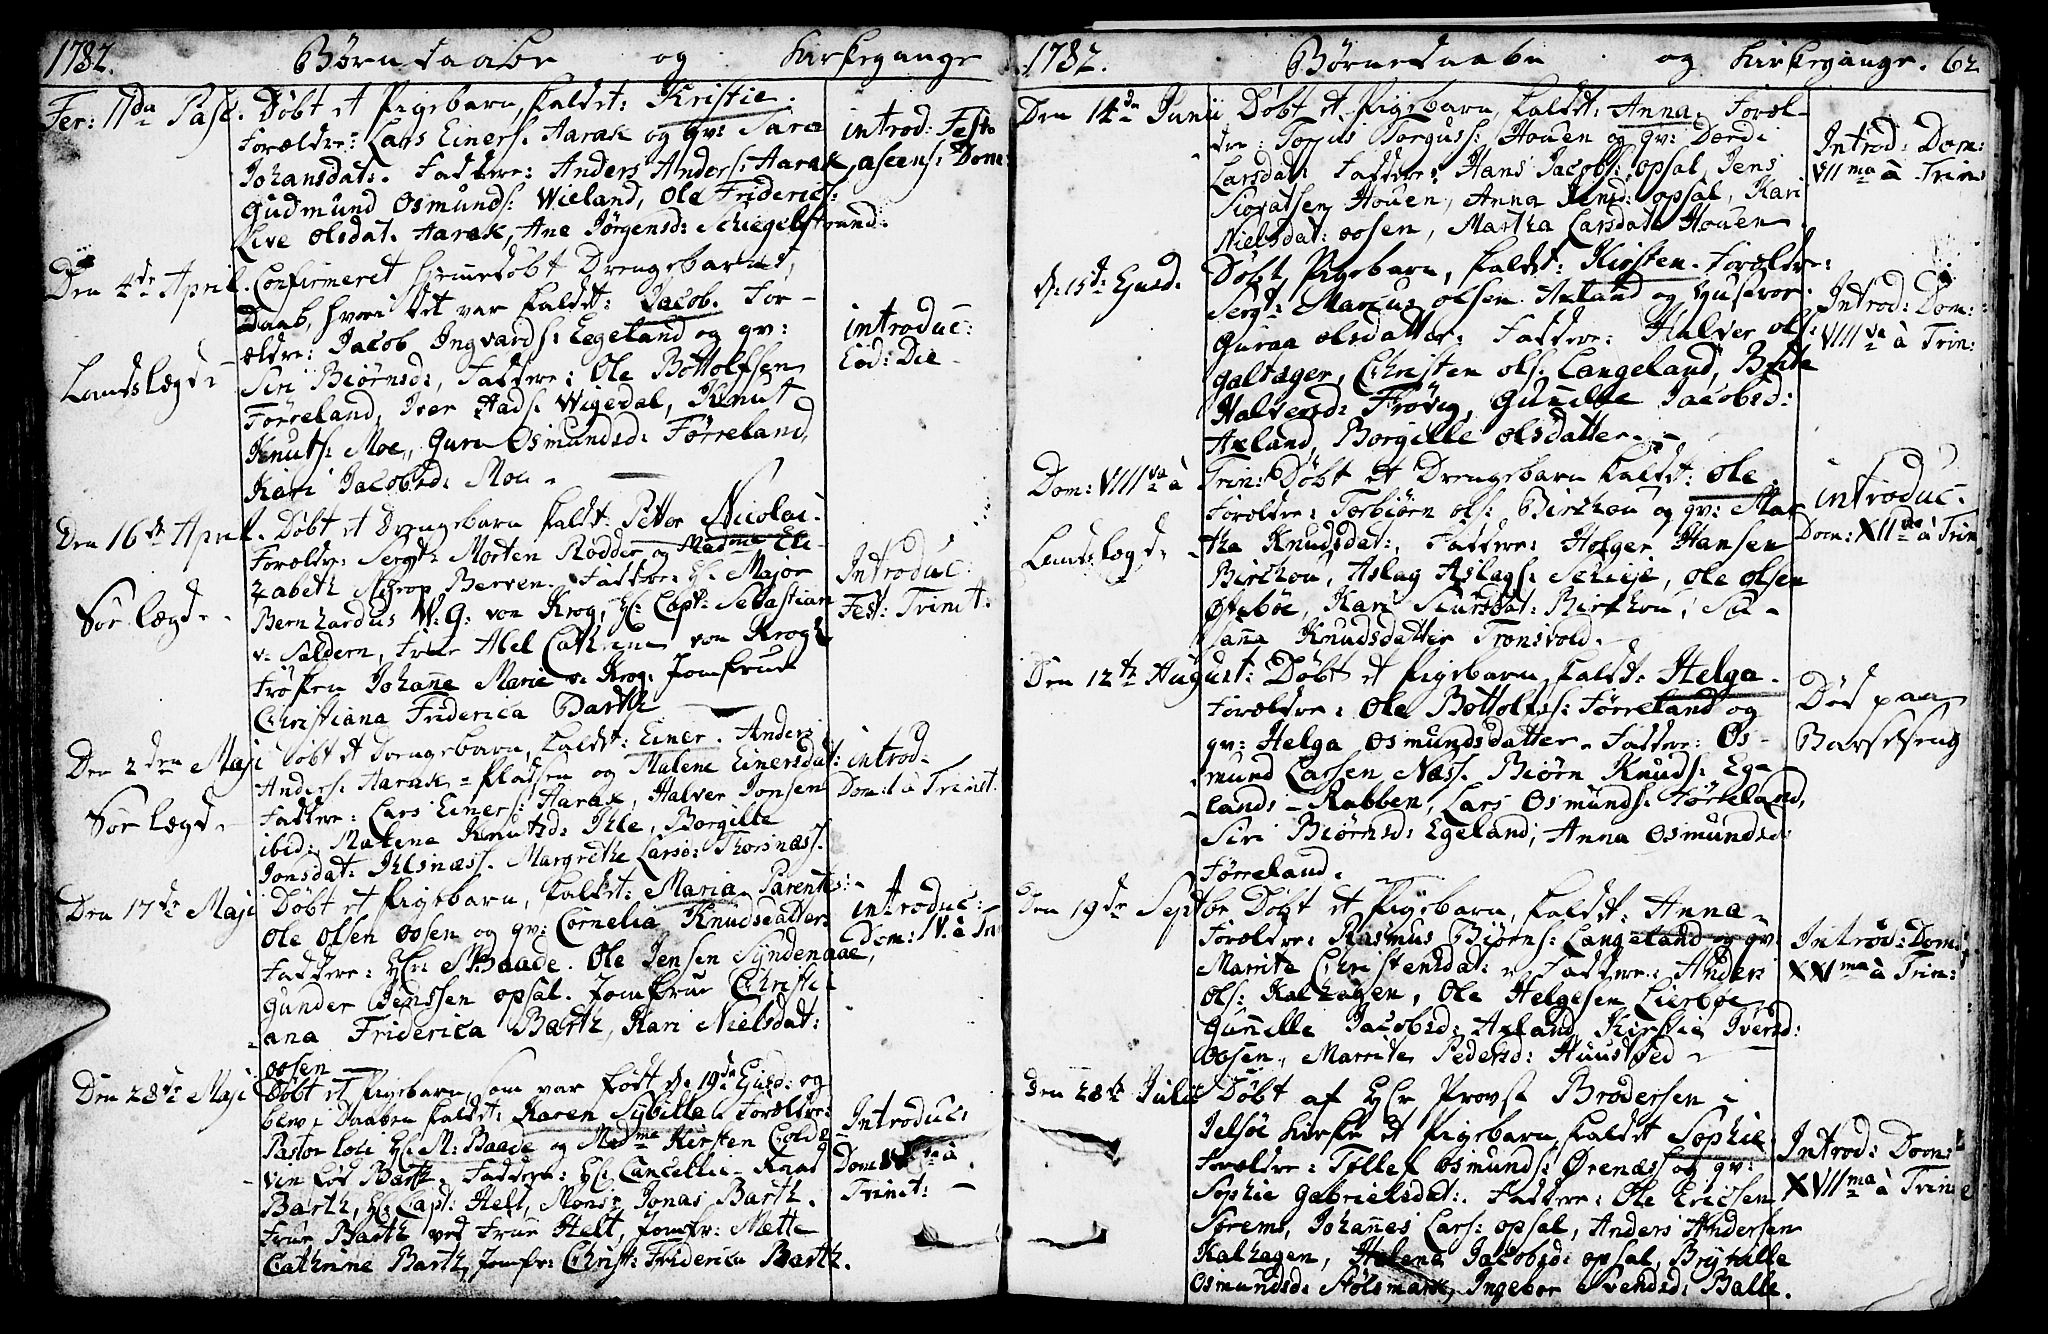 1782. Børnedaabe og Kirkegange
Fer: IIda Pasc. Døbt et Pigebarn, kaldet: Kristie.
Forældre: Lars Einers: Aarak og gv: Sara
Johansdat:. Faddere: Anders Anders: Aarak,
Gudmund Osmunds: Wieland, Ole Friderics:
Live Olsdat. Aarak, Ane Jørgensd: Schiegelstrand:
introd: Festo
ascens: Dom:
Den 4de April. Confirmeret hjemmedøbt Drengebarns
Daab, hvori det var kaldet: Jacob. For-
ældre: Jacob Ingvards: Egeland og gv:
Siri Biørnsd:, Faddere: Ole Bottolfsen
Førreland, Iver Hads: Wigedal, Knut
Knuts: Moe, Guru Osmundsd: Førreland,
Kari Jacobsd: Moe.
Landslægd
introduc:
Eod: Die
Den 16de April. Døbt et Drengebarn kaldt: Petter Nicolai.
Forældr: Sergth Morten Rødder og Madme Eli-
zabeth Strop Berven. Faddere: Hr Major
Bernhardus W. G. von Krog, Hr: Capt: Sebastian
v. Saldern, Frue Abel Cathrine von Krogh
Frøken Johanne Marie v. Krog. Jomfrue
Christiana Friderica Barth
Sør lægd
Introduc:
Fest: Trinit:
Den 2den Maji Døbt et Drengebarn, kaldet: Einer. Anders
Anders: Aarak-Pladsen og Malene Einersdat:
Faddere: Lars Einers: Aarak, Halver Jonsen
ibid: Malena Knutsd: Ihle, Borgille
Jonsdat: Ihlsnæss. Margrethe Larsd: Thorsnæss.
Sør lægd
introd:
Dom: I à Trinit.
Den 17de Maji Døbt et Pigebarn, kaldet: Maria. Parentes:
Ole Olsen Oosen og gv: Cornelia Knudsdatter
Faddere: Hr: M: Baade. Ole Jensen Syndenaae,
Gunder Jenssen Opsal. Jomfrue Christi-
ana Friderica Barth, Kari Nielsdat:
Oosen
introduc:
Dom: IV. à Tr:
Den 28de Maji Døbt et Pigebarn, som var født d: 19de Ejusd: og
blev i Daaben kaldet: Karen Sybilla. Forældre:
Pastor loci Hr M: Baade og Madme Kirsten Colde
vin fød Barth. Faddere: Hr: Cancellie-Raad
Barth, Hr: Capt: Helt, Monsr Jonas Barth.
Frue Barth ved Frue Helt, Jomfr: Mette
Cathrine Barth, Jomfr: Christ: Friderica Barth.
Introduc:
Dom: à
Trinit:
1782. Børnedaabe og Kirkegange. 62
Den 14de Junii Døbt et Pigebarn kaldet: Anna. Foræl-
dre: Torjus Torguss: Houen og gv: Dordi
Larsdat: Faddere: Hans Jacobs: Opsal, Jens
Siovatsen Houen, Anna Jensd: Opsal, Kari
Nielsdat: Oosen, Martha Larsdat: Houen.
Introd: Dom:
VIIma à Trin:
d: 15de Ejusd. Døbt Pigebarn, kaldt: Kirsten. Forældre:
Sergt: Marcus Olsen Axland og Hustroe
Guraa Olsdatter. Faddere: Halver Ols:
Galtager, Christen Ols: Langeland, Brite
Halversd: Frøvig, Gunille Jacobsd:
Axland, Borgille Olsdatter.
Introd: Dom:
VIIIva à Trin:
Dom: VIIIva à Trin: Døbt et Drengebarn kaldet: Ole.
Forældre: Torbiørn Ols: Birkhou og gv: Mar-
tha Knudsdat:, Faddere: Holger Hansen
Birkhou, Aslag Aslags: Schieje, Ole Olsen
Østebøe, Kari Siursdat: Birkhou, Su-
sanna Knudsdatter Tronsvold.
Landslægd
introduc.
Dom: XIIda à Trin
Den 12te August: Døbt et Pigebarn kaldt: Helga.
Forældre: Ole Bottolfs: Førreland og
gv: Helga Osmundsdatter. Faddere: Os-
mund Larsen Næss. Biørn Knuds: Ege-
lands-Rabben, Lars Osmunds: Førreland,
Siri Biørnsd: Egeland, Anna Osmundsd:
Førreland.
Død paa
Barselseng
Den 19de Septbr Døbt et Pigebarn, kaldet: Anna.
Forældre: Rasmus Biørns: Langeland og gv:
Marrite Christensdat: Faddere: Anders
Ols: Kalhagen, Ole Helgesen Lierbøe
Gunille Jacobsd: Axland, Kirstie Iversd:
Oosen, Marrite Pedersd: Huustved
Introd: Dom:
XXIma à Trin:
Den 28de Julii Døbt af Hr Provst Brodersen i
Jelsøe Kirke et Pigebarn kaldet Sophie.
Forældre: Tollef Osmunds: Ørenæs og gv:
Sophie Gabrielsdat:. Faddere: Ole Ericsen
Sørems, Johannes Lars: Opsal, Anders Andersen
Kalhagen, Helena Jacobsd: Opsal, Brynille
Osmundsd: Hølsmark, Ingebor Svendsd: Balle.
Introd: Dom:
XVIIma à Trin: